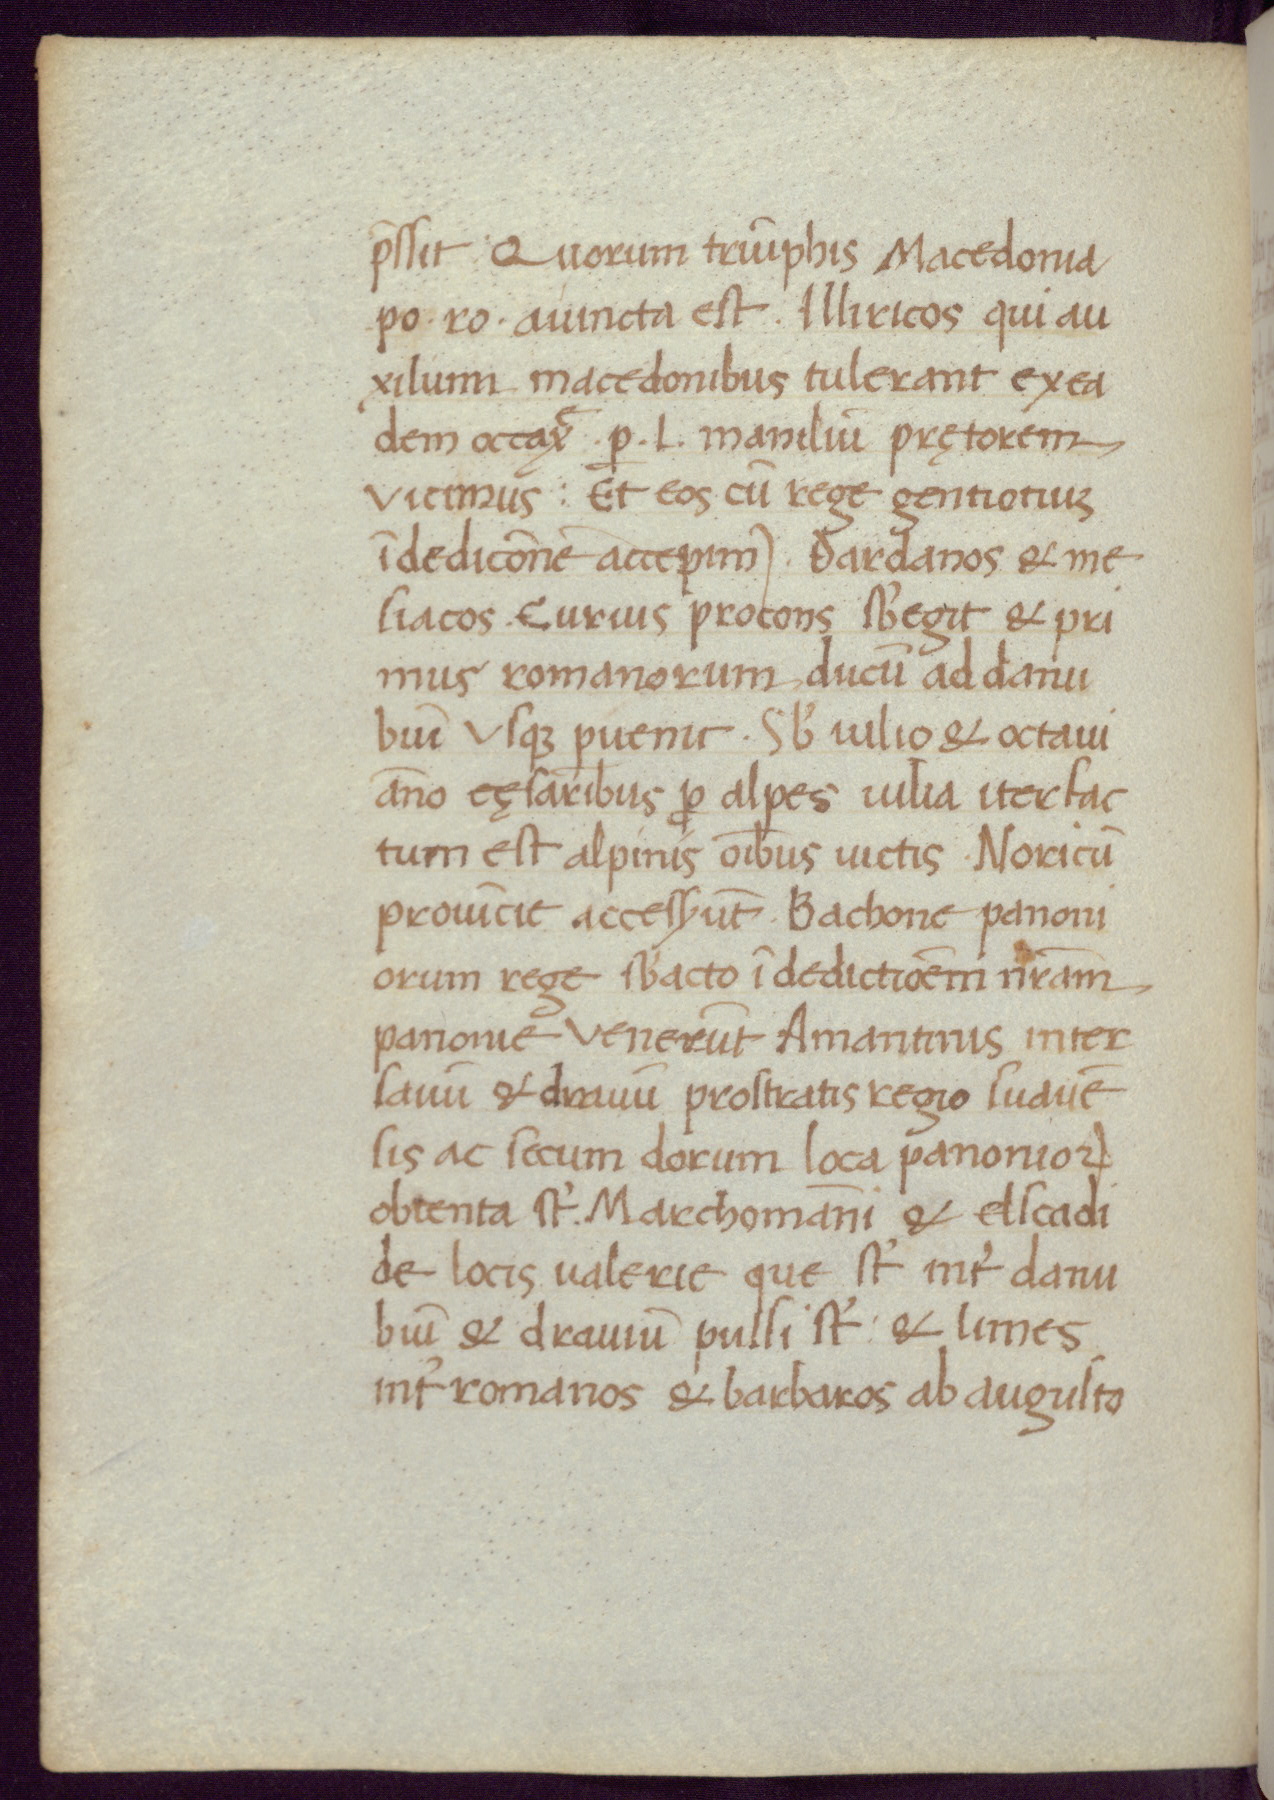 p̄ſſit. Quorum triūphis Macedonia
po. ro. aiuncta eſt. Illiricos qui au
xilium macedonibus tulerant exea
dem occax̄. ꝑ. L. maniliū pr̨etorem
vicimus: Et eos cū rege gentiotiuꝫ
ī dedicōne accepim). Dardanos & me
ſiacos. Curius procons ſb̓egit & pri
mus romanorum ducū ad danu
biū vſqꝫ p̄uenit. Sb̓ iulio & octaui
āno cęſaribus ꝑ alpes iulia iter fac
tum eſt alpinis oībus uictis. Noricū
prouīcie acceſſ̓ūt. Bachone panoni
orum rege ſb̓acto ī dedictioēm nr̄am
panonie venerūt Amantinis inter
ſauū & drauū proſtratis regio ſuauē
ſis ac ſecum dorum loca panonioꝝ
obtenta ſt̓. Marchomāni & elſcadi
de locis ualerie que ſt̓ int̓ danu
biū & drauiū pulſi ſt̓: & limes
int̓ romanos & barbaros ab auguſto